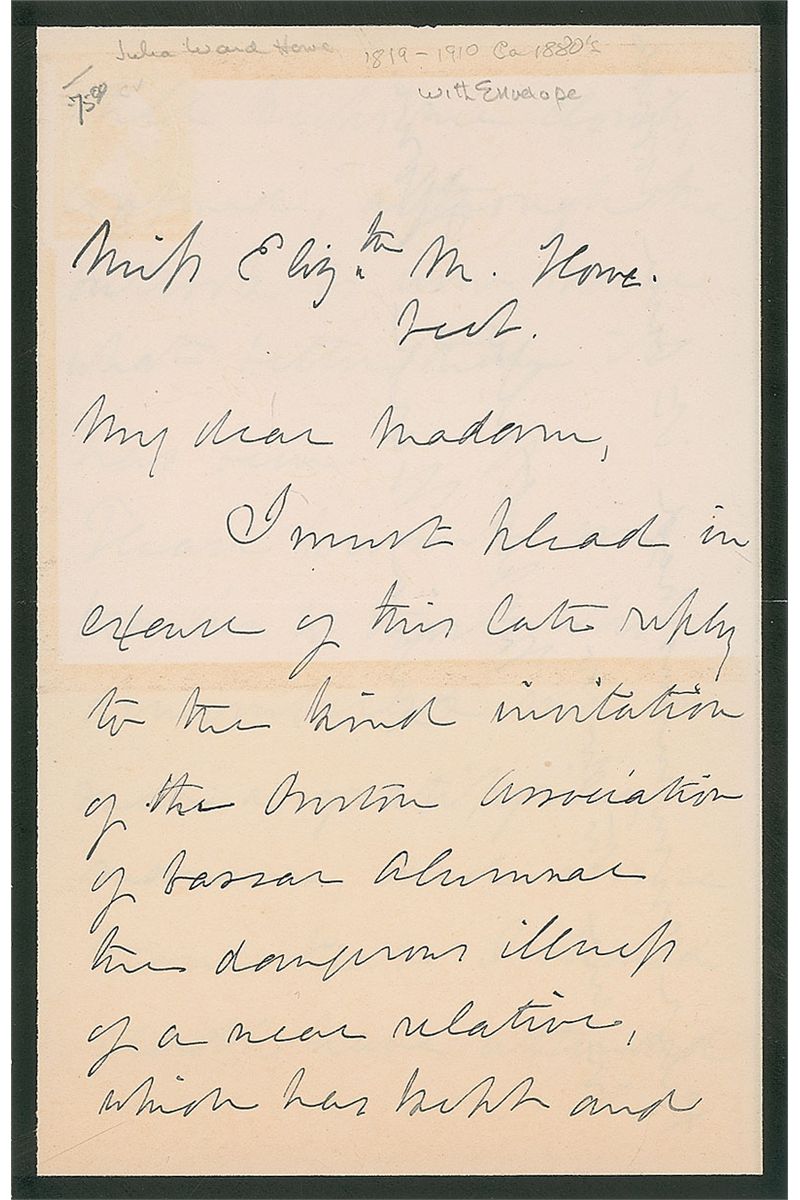 Julia Ward Howe 1819-1910 Ca 1880's
with Envelope
75.00
Miss Eliz.th M. Howe.
Sect.
My dear Madam,
I must plead in
excuse of this late reply
to the kind invitation
of the Boston Association
of Vassar Alumnae
the dangerous illness
of a near relative,
which has kept and